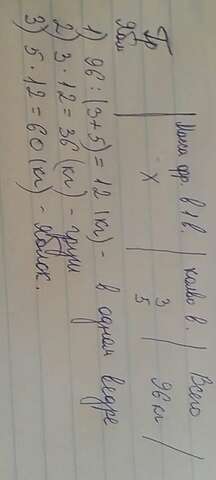 Масса фр. в 1 в. | кол-во в. | Всего
Гр. | х | 3 | 96 кг
Ябл. | 5
1) 96 : (3+5) = 12 (кг) - в одном ведре
2) 3 · 12 = 36 (кг) - груш
3) 5 · 12 = 60 (кг) - яблок.